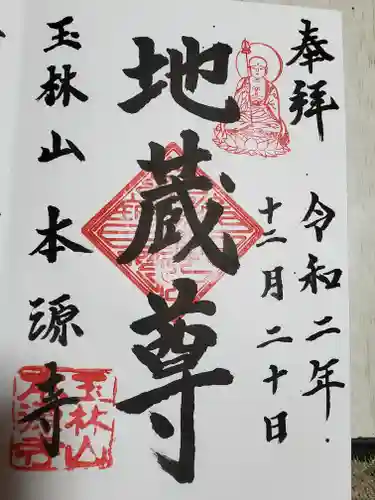 奉拝
令和二年
十二月二十日
地蔵尊
玉林山本源寺